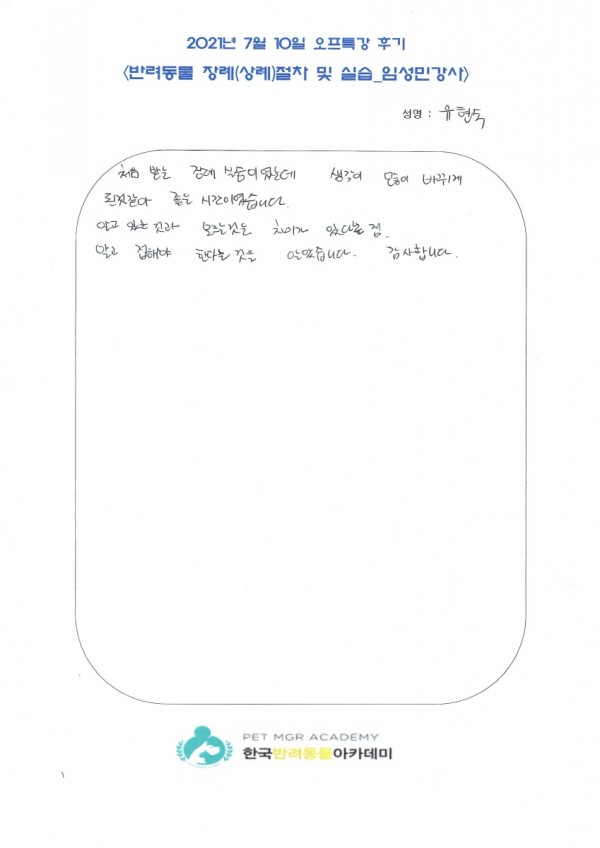 2021년 7월 10일 오프특강 후기
<반려동물 장례(상례)절차 및 실습_임성민강사>
성명 : 유현숙
처음 받는 장례 실습이였는데 생각이 많이 바뀌게
된것같아 좋은 시간이였습니다.
알고 있는 것과 모르는것은 차이가 있다는 점.
알고 접해야 한다는 것을 알았습니다. 감사합니다.
PET MGR ACADEMY
한국반려동물아카데미